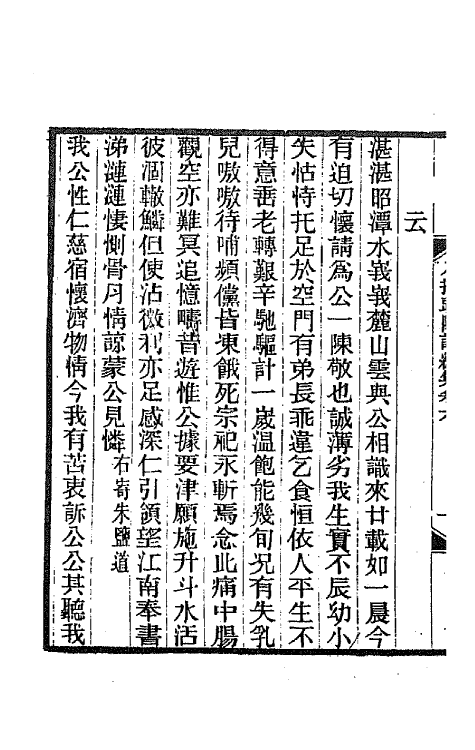 云
湛湛昭潭水峩峩麓山雲與公相識來廿載如一晨今
有迫切懷請爲公一陳敬也誠薄劣我生實不辰幼小
失怙恃托足於空門有弟長乖違乞食恒依人平生不
得意垂老轉艱辛馳驅計一嵗温飽能幾旬况有失乳
兒嗷嗷待哺頻儻皆凍餓死宗祀永斬焉念此痛中腸
觀空亦難冥追憶疇昔遊惟公據要津願施升斗水活
彼涸轍鱗但使沾微利亦足感深仁引領望江南奉書
涕漣漣悽惻骨肉情諒蒙公見憐右寄朱鹽道
我公性仁慈宿懷濟物情今我有苦衷訴公公其聽我